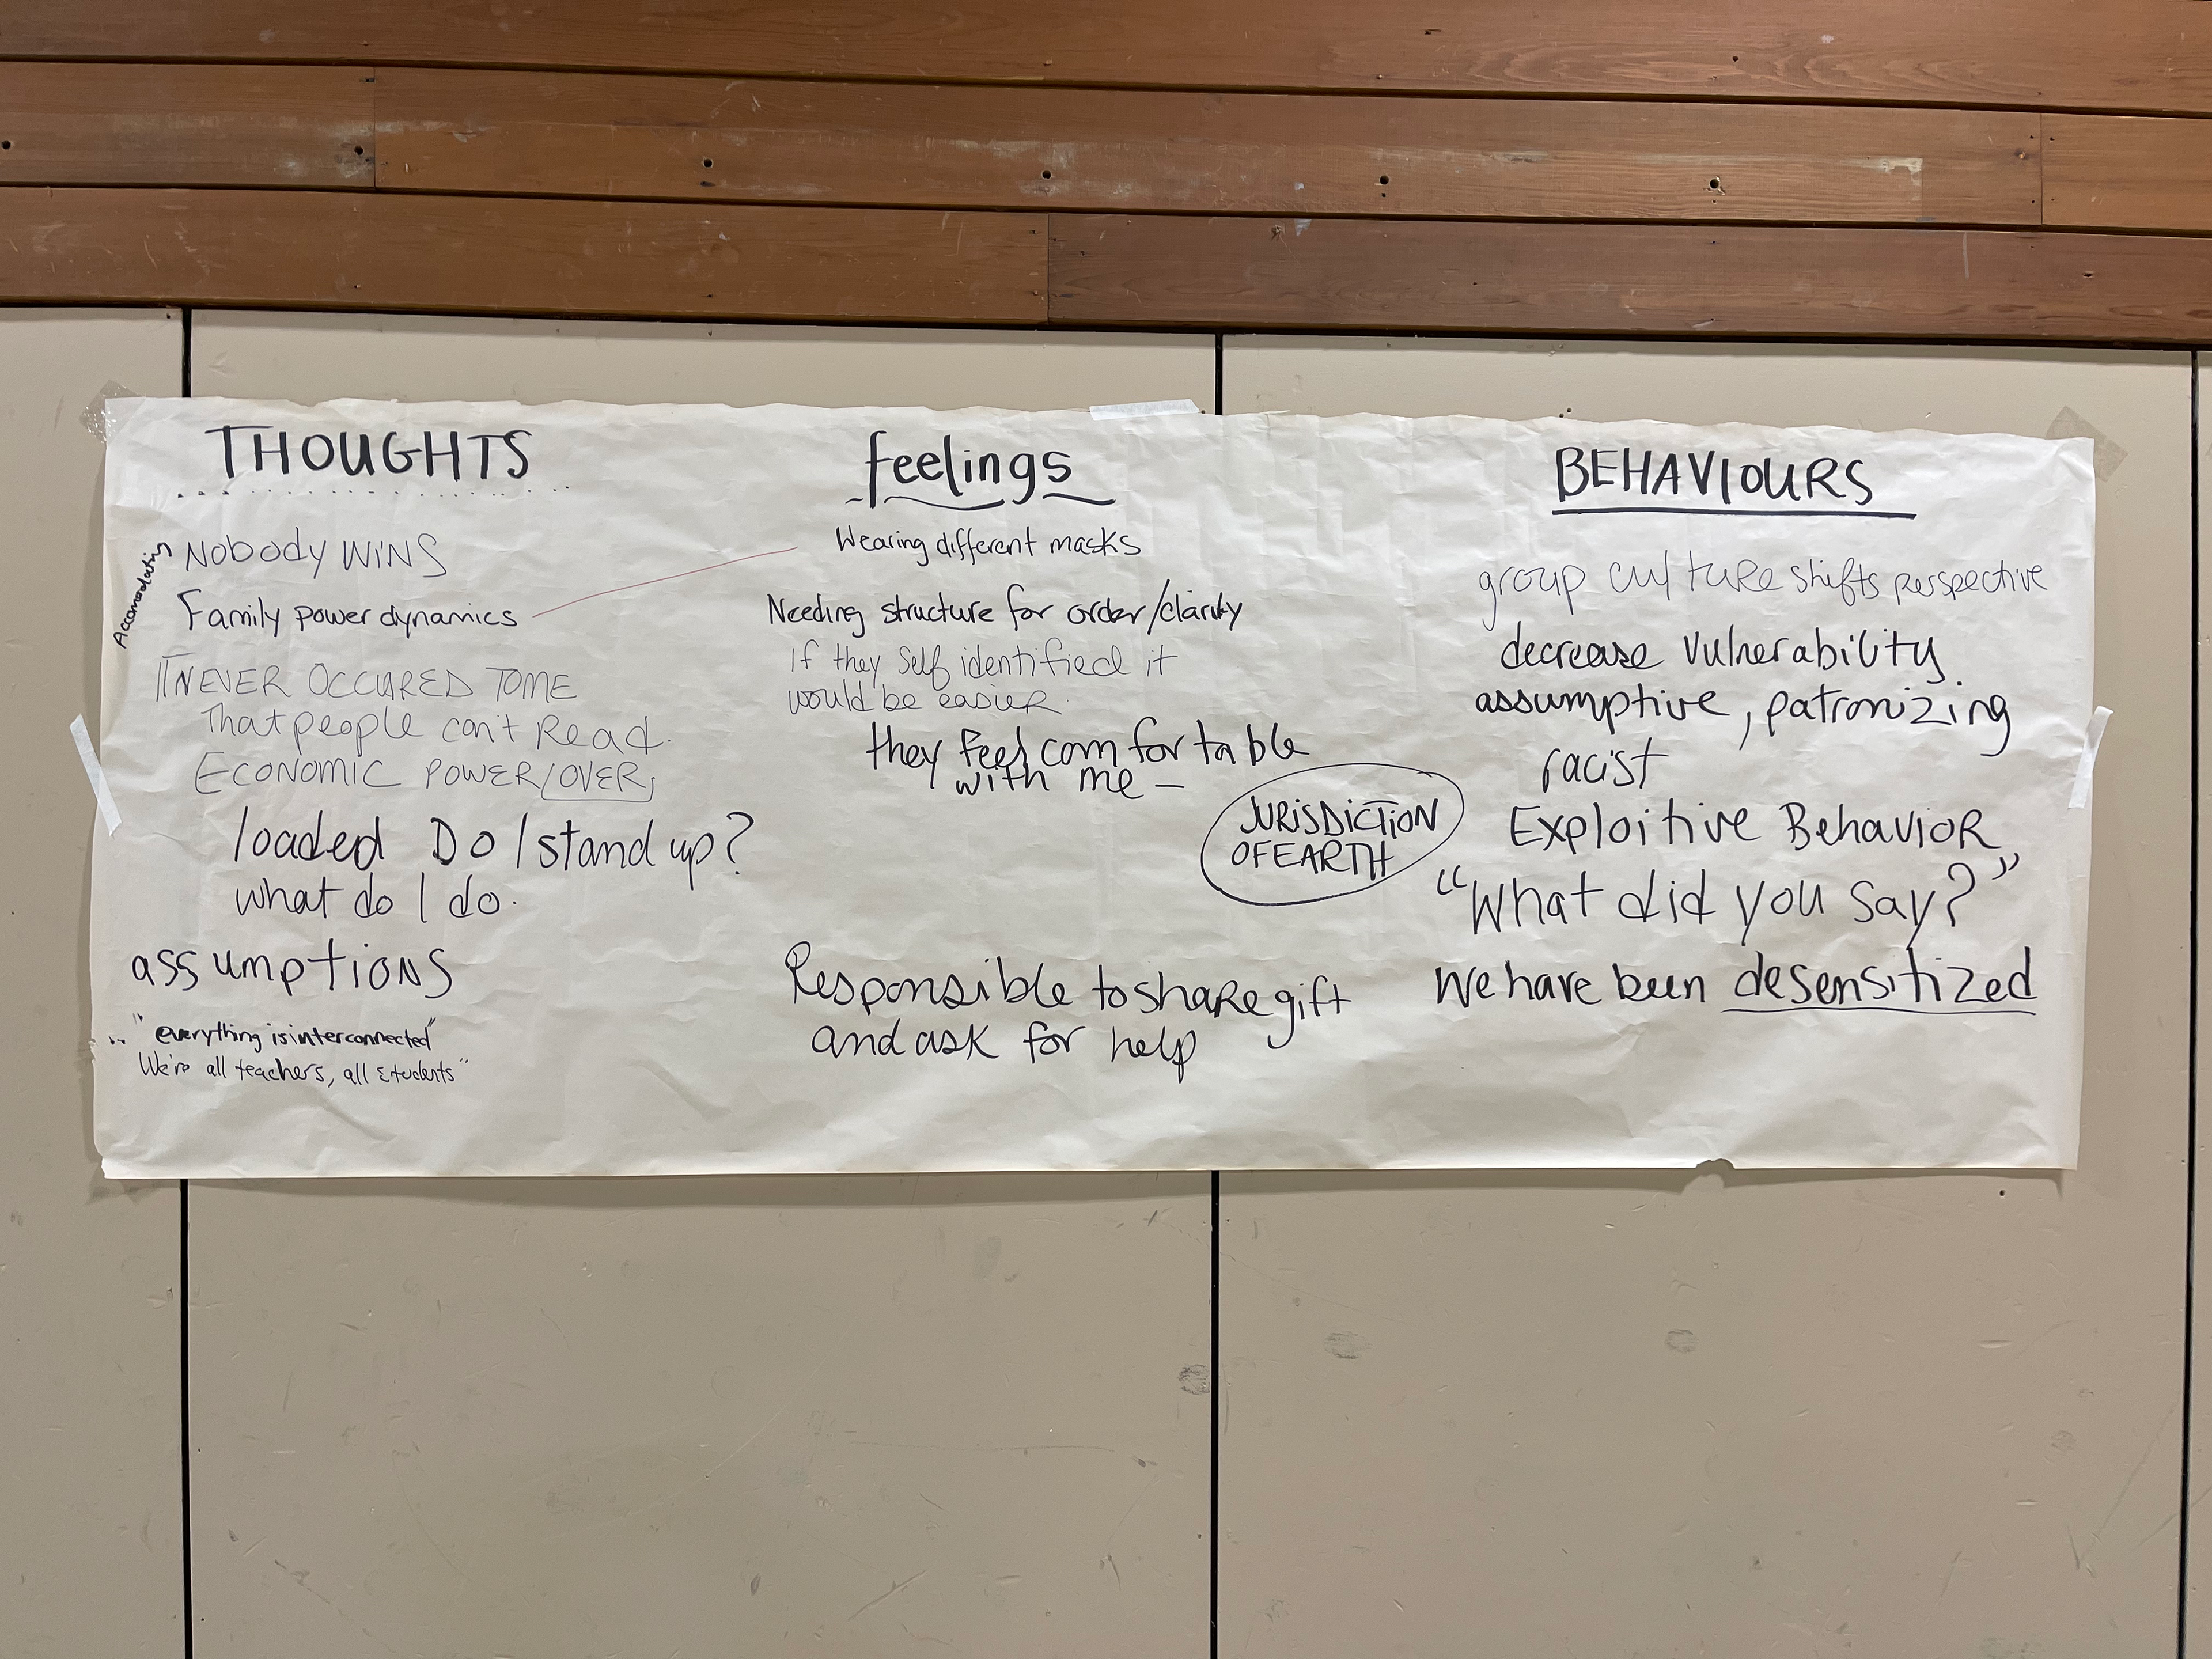 THOUGHTS
Accomodating
NObODY WINS
Family power dynamics
IT NEVER OCCURED TO ME
That people can't Read.
ECONOMIC POWER/OVER
loaded Do I stand up?
what do I do.
assumptions
"everything is interconnected"
We're all teachers, all students"
feelings
Wearing different masks
Needing structure for order/clarity
If they Self identified it
would be easier.
they feel comfortable
with me —
JURISDICTION
OF EARTH
Responsible to share gift
and ask for help
BEHAVIOURS
group culture shifts perspective
decrease vulnerability
assumptive, patronizing
racist
Exploitive Behavior
"What did you say?"
We have been desensitized